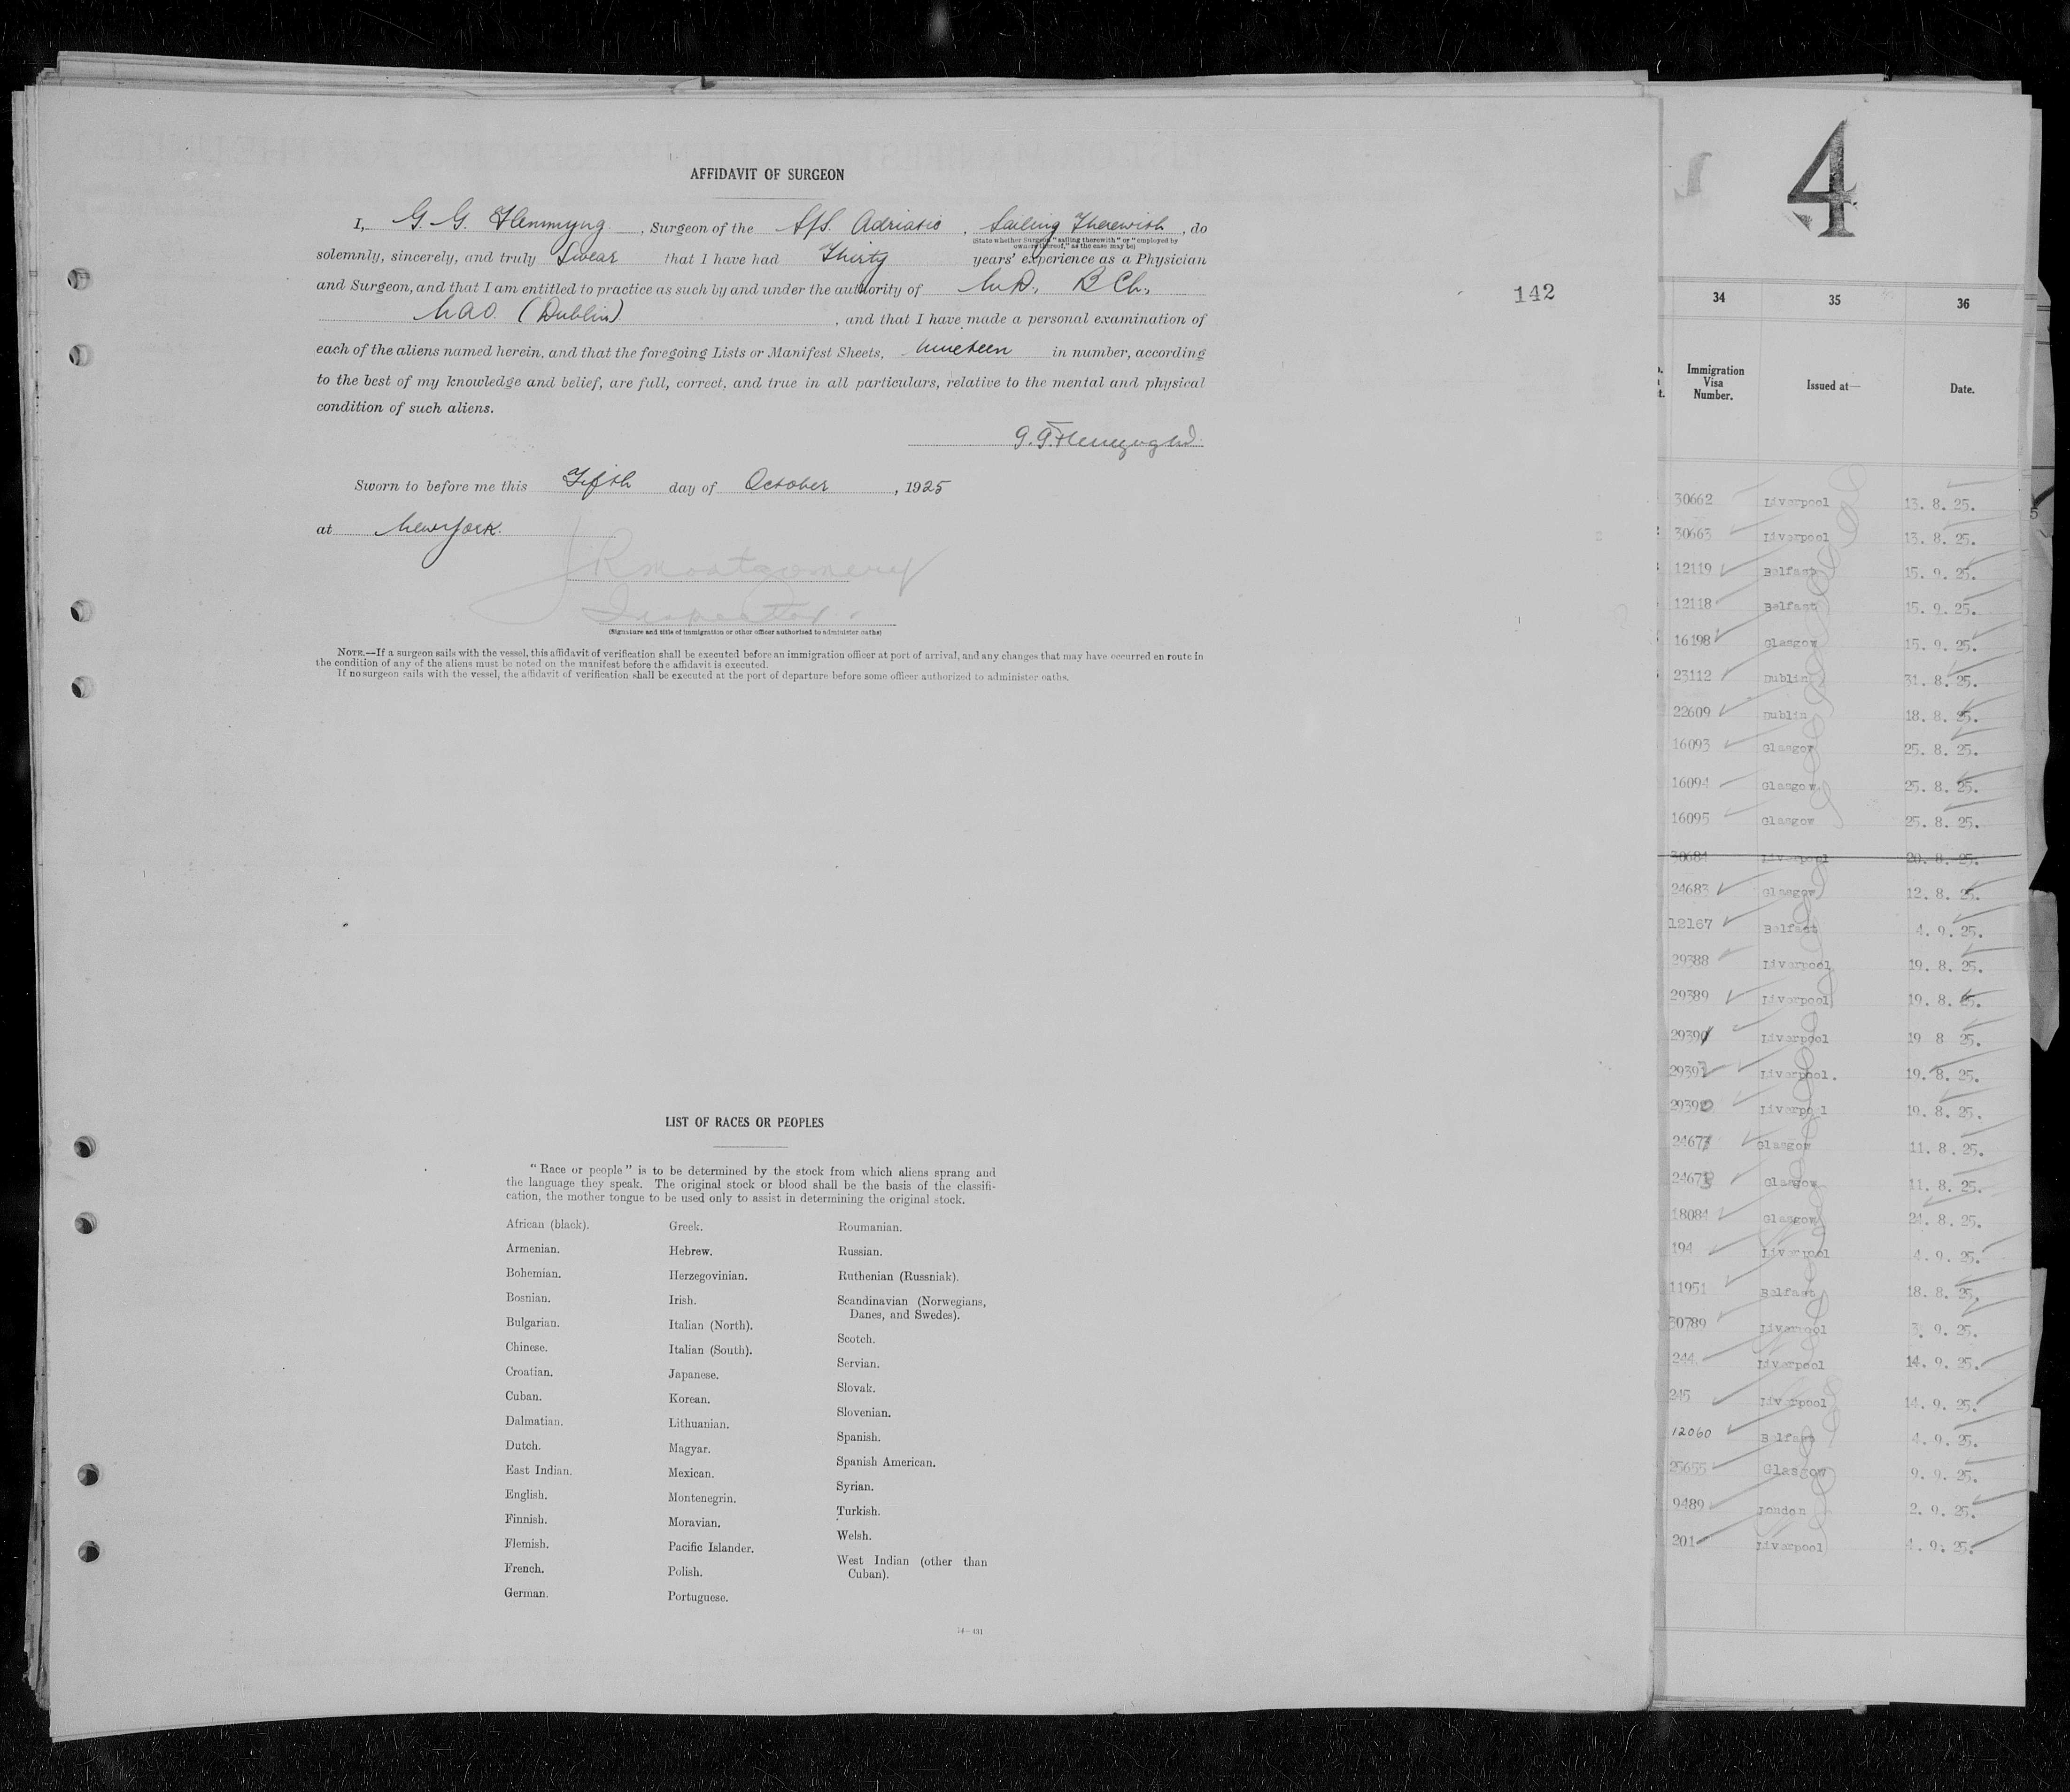 AFFIDAVIT OF SURGEON
I, G. G. Flemmyng, Surgeon of the S/S. Adriatic, Sailing Therewith, do
(State whether Surgeon "sailing therewith" or "employed by
owners thereof," as the case may be)
solemnly, sincerely, and truly Swear that I have had Thirty years' experience as a Physician
and Surgeon, and that I am entitled to practice as such by and under the authority of M.D., B Ch.,
MAO. (Dublin), and that I have made a personal examination of
each of the aliens named herein, and that the foregoing Lists or Manifest Sheets, nineteen in number, according
to the best of my knowledge and belief, are full, correct, and true in all particulars, relative to the mental and physical
condition of such aliens.
Sworn to before me this Fifth day of October, 1925
at New York.
J R Montgomery
Inspector.
(Signature and title of immigration or other officer authorized to administer oaths)
NOTE.—If a surgeon sails with the vessel, this affidavit of verification shall be executed before an immigration officer at port of arrival, and any changes that may have occurred en route in
the condition of any of the aliens must be noted on the manifest before the affidavit is executed.
If no surgeon sails with the vessel, the affidavit of verification shall be executed at the port of departure before some officer authorized to administer oaths.
142
LIST OF RACES OR PEOPLES
"Race or people" is to be determined by the stock from which aliens sprang and
the language they speak. The original stock or blood shall be the basis of the classifi-
cation, the mother tongue to be used only to assist in determining the original stock.
African (black).
Armenian.
Bohemian.
Bosnian.
Bulgarian.
Chinese.
Croatian.
Cuban.
Dalmatian.
Dutch.
East Indian.
English.
Finnish.
Flemish.
French.
German.
Greek.
Hebrew.
Herzegovinian.
Irish.
Italian (North).
Italian (South).
Japanese.
Korean.
Lithuanian.
Magyar.
Mexican.
Montenegrin.
Moravian.
Pacific Islander.
Polish.
Portuguese.
Roumanian.
Russian.
Ruthenian (Russniak).
Scandinavian (Norwegians,
Danes, and Swedes).
Scotch.
Servian.
Slovak.
Slovenian.
Spanish.
Spanish American.
Syrian.
Turkish.
Welsh.
West Indian (other than
Cuban).
4
34 35 36
Immigration
Visa
Number.
Issued at—
Date.
30662 Liverpool 13. 8. 25.
30663 Liverpool 13. 8. 25.
12119 Belfast 15. 9. 25.
12118 Belfast 15. 9. 25.
16198 Glasgow 15. 9. 25.
23112 Dublin 31. 8. 25.
22609 Dublin 18. 8. 25.
16093 Glasgow 25. 8. 25.
16094 Glasgow. 25. 8. 25.
16095 Glasgow 25. 8. 25.
30684 Liverpool 20. 8. 25.
24683 Glasgow 12. 8. 25.
12167 Belfast 4. 9. 25.
29388 Liverpool 19. 8. 25.
29389 Liverpool 19. 8. 25.
Liverpool 19 8 25.
Liverpool. 19. 8. 25.
29390 Liverpool 19. 8. 25.
Glasgow 11. 8. 25.
Glasgow 11. 8. 25.
18084 Glasgow 24. 8. 25.
194 Liverpool 4. 9. 25.
11951 Belfast 18. 8. 25.
30789 Liverpool 3. 9. 25.
244. Liverpool 14. 9. 25.
245 Liverpool 14. 9. 25.
12060 Belfast 4. 9. 25.
25655 Glasgow 9. 9. 25.
9489 London 2. 9. 25.
201 Liverpool 4. 9. 25.